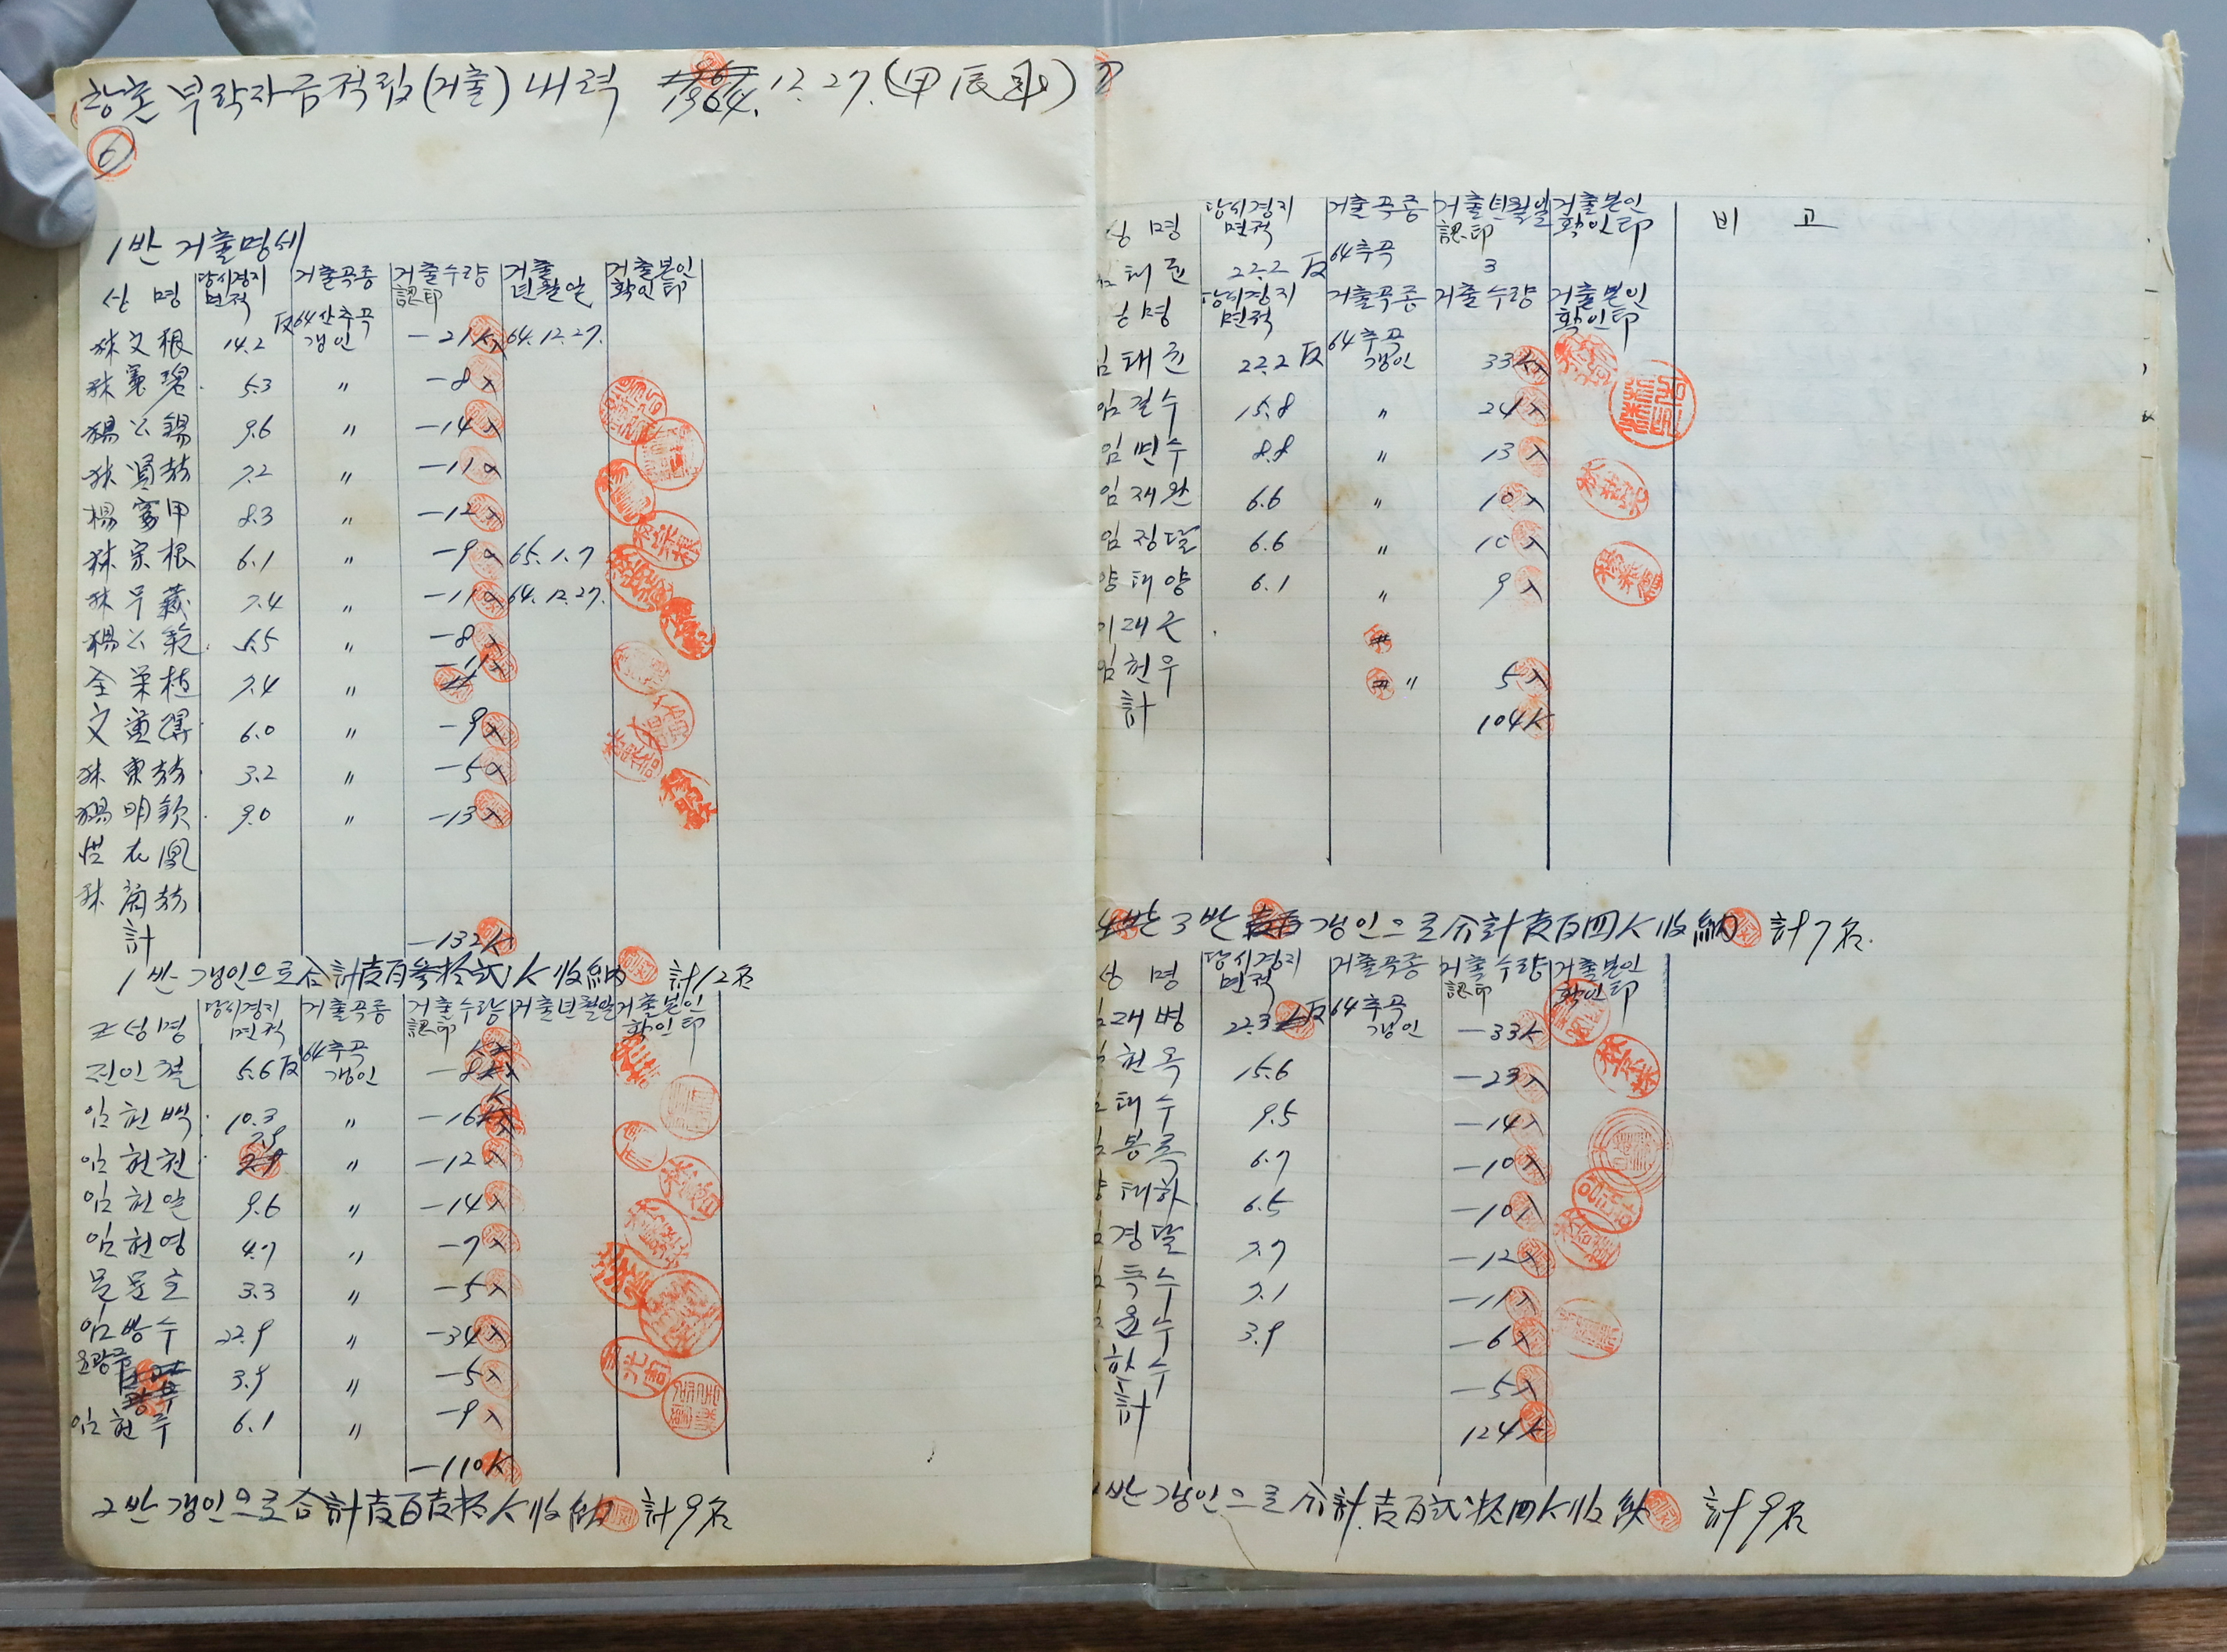 창촌 부락자금적립(거출)내력 1964. 12. 27. (甲辰年)
6
1반 거출명세
성 명 당시경지면적 거출곡종 거출수량 認印 거출년월일 거출본인확인印
林文根 14.2 反 64산추곡갱인 -21入 64.12.27.
林 5.3 〃 -8入
楊公錫 9.6 〃 -14入
林賢 7.2 〃 -11入
楊 甲 8.3 〃 -12入
林宗根 6.1 〃 -9入 65.1.7
林 7.4 〃 -11入 64.12.27.
楊公 5.5 〃 -8入
全栄植 7.4 〃 -11入
文 6.0 〃 -9入
林東 3.2 〃 -5入
楊明欽 9.0 〃 -13入
林
計 -132入
1반 갱인으로 合計壹百參拾貳入收納 計12名
성명 당시경지면적 거출곡종 거출수량 認印 거출년월일 거출본인확인印
진인철 5.6反 64추곡갱인 -8入
임헌백 10.3 〃 -16入
임헌천 7.9 〃 -12入
임헌일 9.6 〃 -14入
임헌영 4.7 〃 -7入
문문호 3.3 〃 -5入
임방수 22.9 〃 -34入
윤광주 3.9 〃 -5入
임헌주 6.1 〃 -9入
-110入
2반 갱인으로 合計壹百壹拾入收納 計9名
7
성명 당시경지면적 거출곡종 거출년월일 認印 거출본인확인印 비 고
태균 22.2 反 64추곡 3
성명 당시경지면적 거출곡종 거출수량 거출본인확인印
임태균 22.2反 64추곡갱인 33入
임걸수 15.8 〃 24入
임면수 8.8 〃 13入
임재완 6.6 〃 10入
임정달 6.6 〃 10入
양태양 6.1 〃 9入
이래근
임헌우 〃 5入
計 104入
3반 갱인으로 合計壹百四入收納 計7名.
성명 당시경지면적 거출곡종 거출수량 認印 거출본인확인印
래병 22.3反 64추곡갱인 -33入
헌옥 15.6 -23入
태수 9.5 -14入
봉록 6.7 -10入
양태하 6.5 -10入
경달 7.7 -12入
득수 7.1 -11入
윤수 3.9 -6入
학수 -5入
計 124入
반 갱인으로 合計壹百貳拾四入收納 計9名